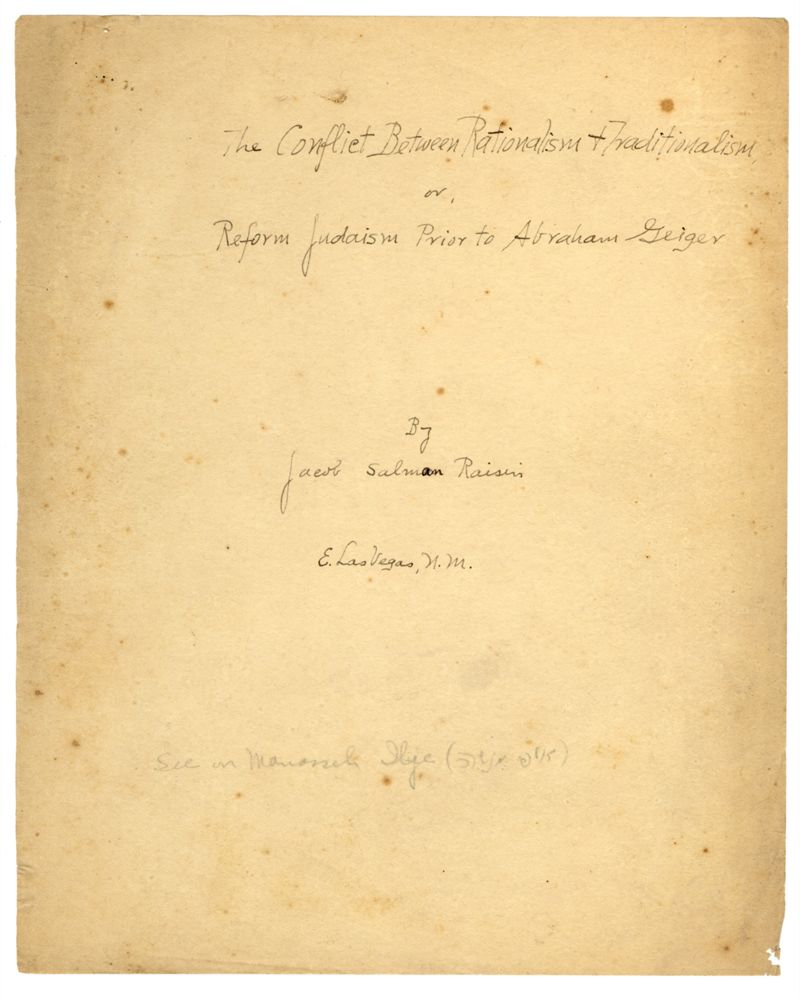 The Conflict Between Rationalism + Traditionalism,
or,
Reform Judaism Prior to Abraham Geiger
By
Jacob Salman Raisin
E. Las Vegas, N.M.
See on Manasseh Ilye